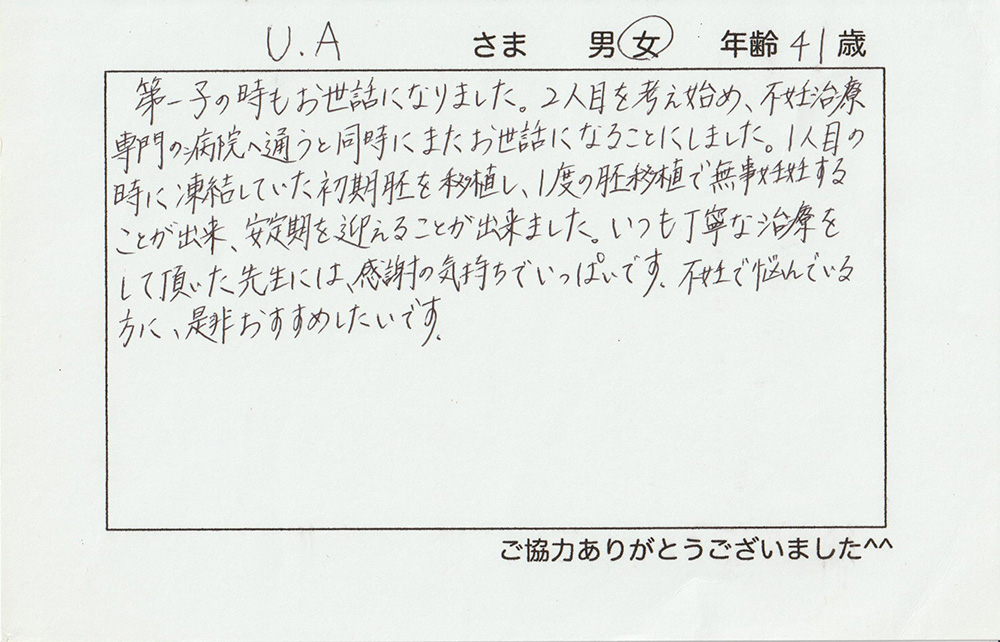 U.A さま 男 女 年齢 41 歳
第一子の時もお世話になりました。2人目を考え始め、不妊治療
専門の病院へ通うと同時にまたお世話になることにしました。1人目の
時に凍結していた初期胚を移植し、1度の胚移植で無事妊娠する
ことが出来、安定期を迎えることが出来ました。いつも丁寧な治療を
して頂いた先生には、感謝の気持ちでいっぱいです。不妊で悩んでいる
方に、是非おすすめしたいです。
ご協力ありがとうございました^^